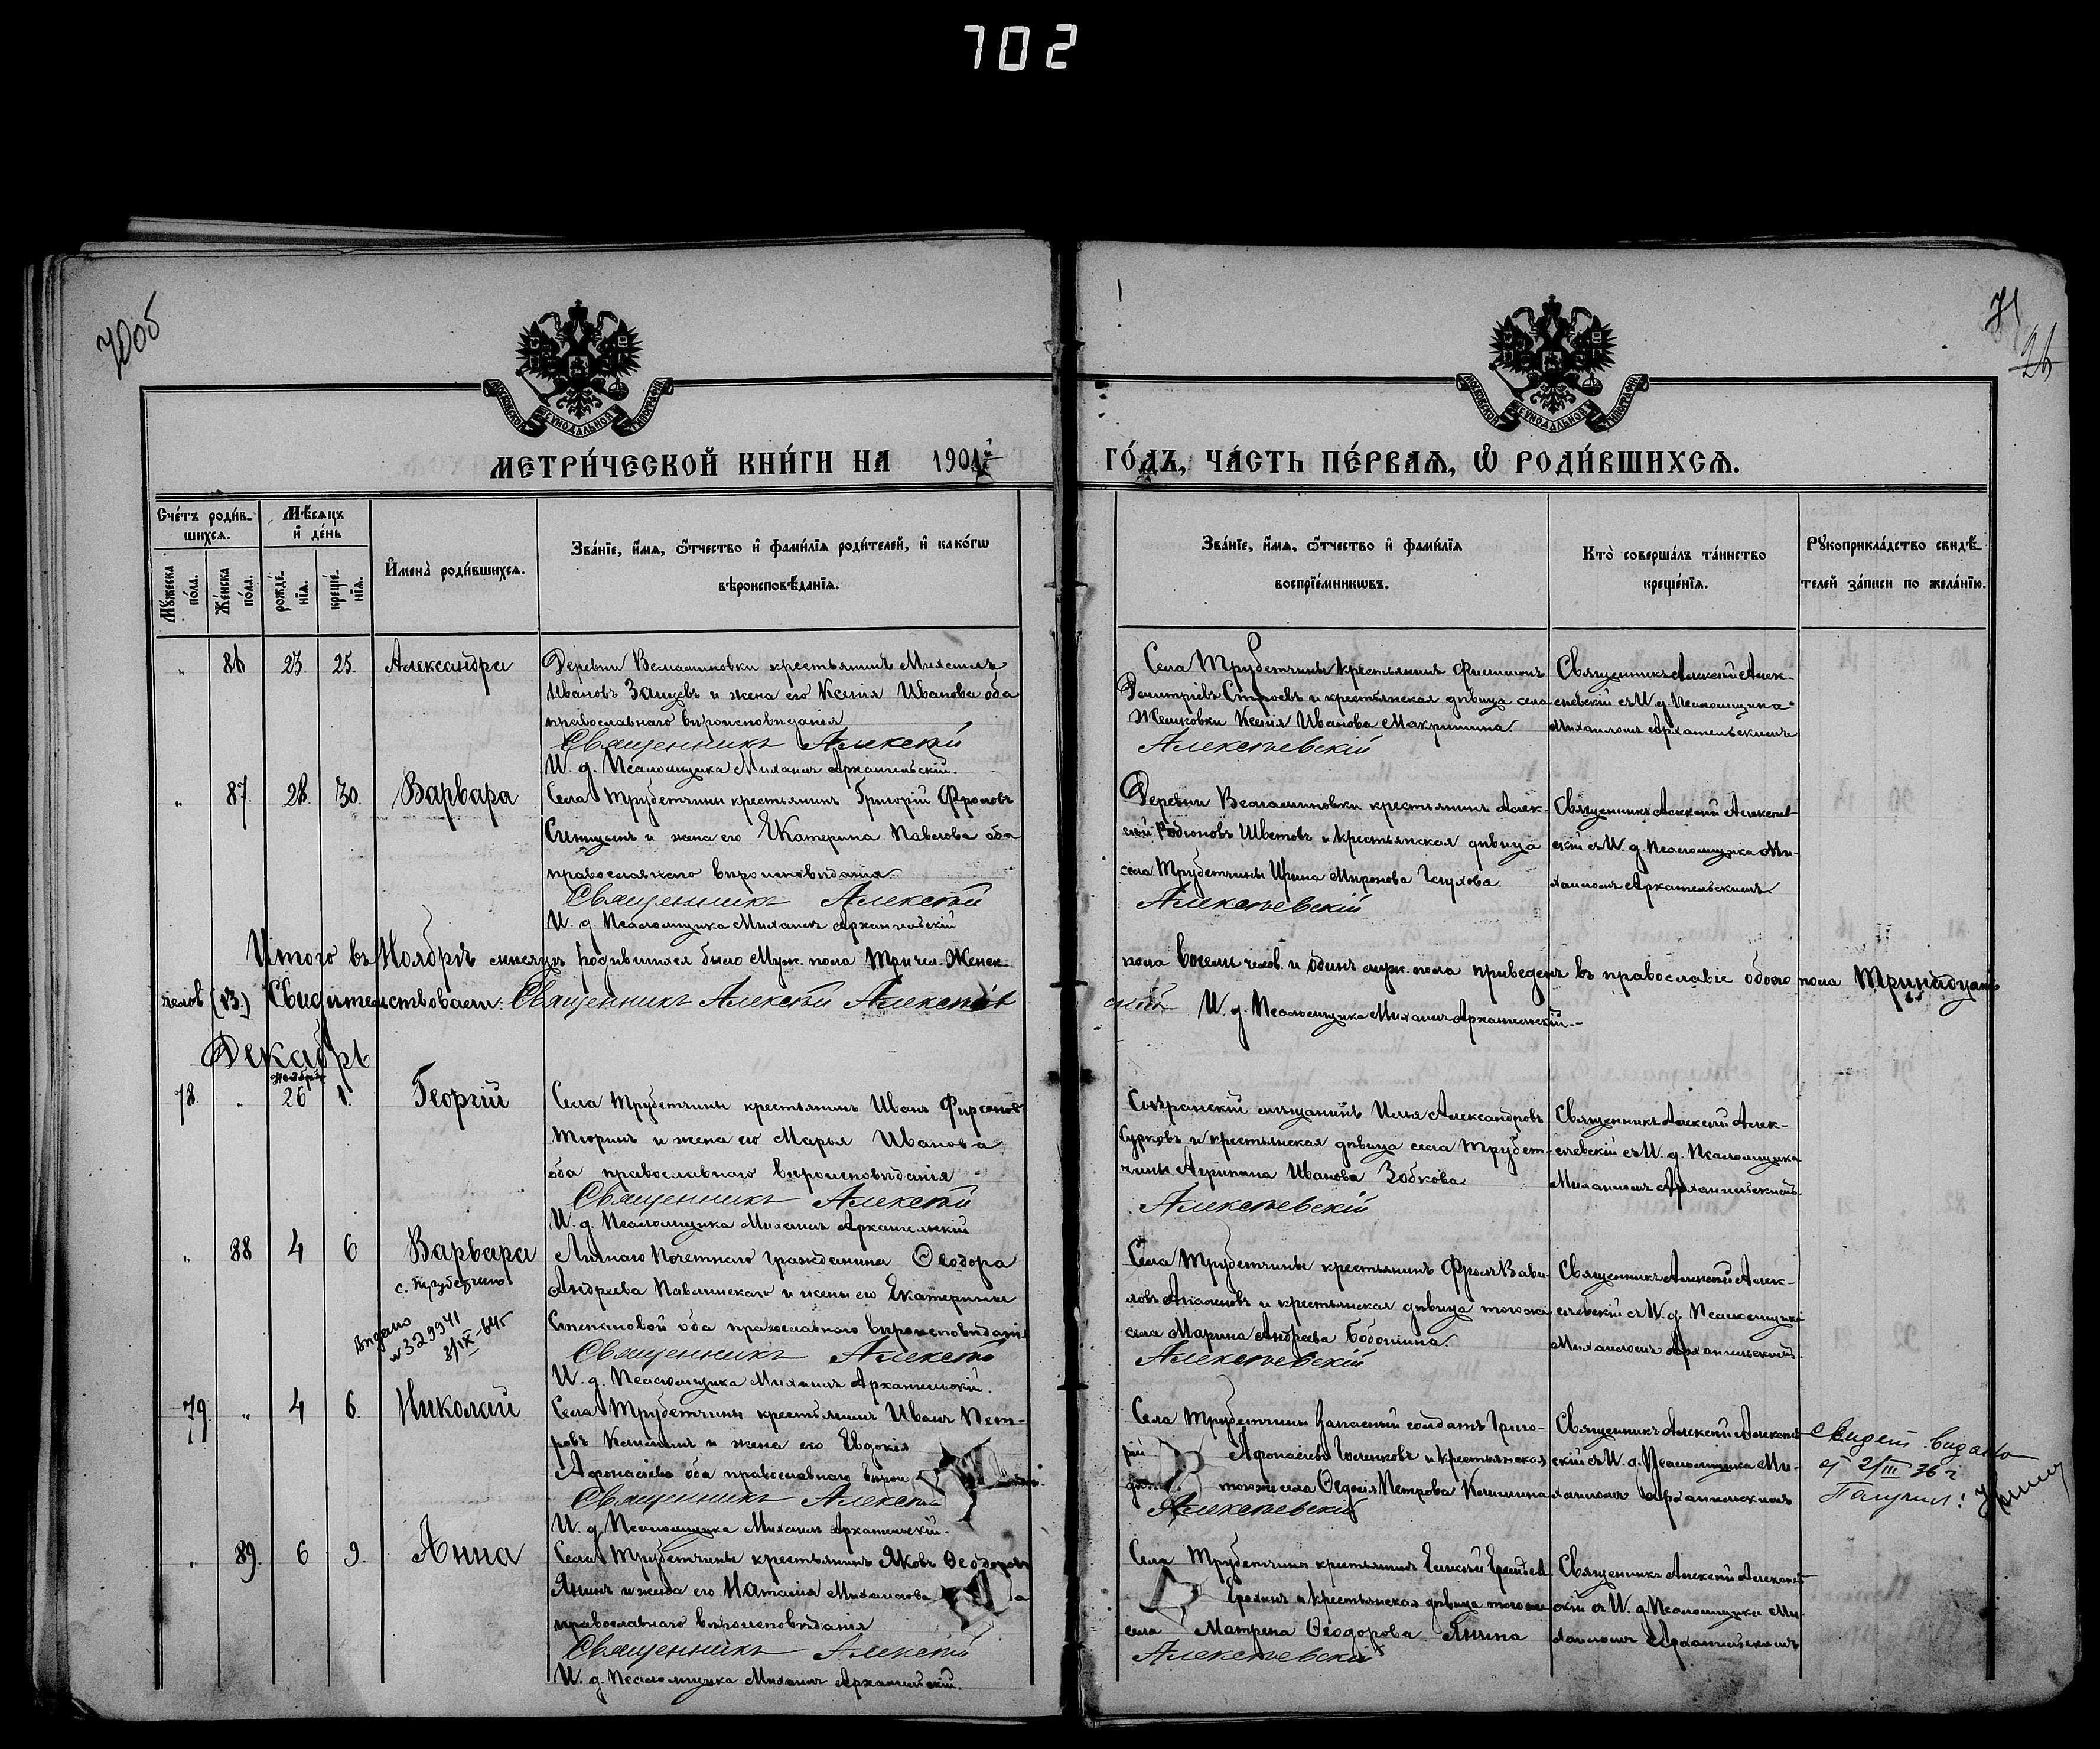 702
70об
71
26
МОСКОВСКОЙ СѴНОДАЛЬНОЙ ТИПОГРАФІИ
МОСКОВСКОЙ СѴНОДАЛЬНОЙ ТИПОГРАФІИ
МЕТРИ́ЧЕСКОЙ КНИ́ГИ НА 1901й
ГО́ДЪ, ЧА́СТЬ ПЕ́РВАѦ, Ѽ РОДИ́ВШИХСѦ.
Сче́тъ роди́в-
шихсѧ.
Мѣ́сѧцъ
и҆ де́нь
Мꙋ́жеска по́ла.
Же́нска по́ла.
рожде́-
нїѧ.
креще́-
нїѧ.
И҆мена̀ роди́вшихсѧ.
Зва́нїе, и҆́мѧ, ѻ҆́тчество и҆ фами́лїѧ роди́телей, и҆ како́гѡ
вѣроисповѣ́данїѧ.
Зва́нїе, и҆́мѧ, ѻ҆́тчество и҆ фами́лїѧ
воспрїе́мникѡвъ.
Кто̀ соверша́лъ та́инство
креще́нїѧ.
Рꙋкоприкла́дство свидѣ́-
телей за́писи по жела́нїю.
" 86 23. 25. Александра
Деревни крестьянинъ Михаилъ
Ивановъ Зайцевъ и жена его Ксенія Иванова оба
православнаго вѣроисповѣданія
Священникъ Алексѣй
И. д. Псаломщика Михаилъ Архангельскій.
Села Трубетчины крестьянинъ Филимонъ
Димитріевъ Строевъ и крестьянская дѣвица села
Ксенія Иванова
Алексѣевскій
Священникъ Алексѣй Алек-
сѣевскій съ И. д. Псаломщика
Михаиломъ Архангельскимъ
" 87. 28. 30. Варвара
Села Трубетчины крестьянинъ Григорій Фроловъ
Синицынъ и жена его Екатерина Павлова оба
православнаго вѣроисповѣданія
Священникъ Алексѣй
И. д. Псаломщика Михаилъ Архангельскій
Деревни крестьянинъ Алек-
сѣй Родіоновъ Швецовъ и крестьянская дѣвица
села Трубетчины Ирина Миронова Глухова.
Алексѣевскій
Священникъ Алексѣй Алексѣев-
скій съ И. д. Псаломщика Ми-
хаиломъ Архангельскимъ
Итого въ Ноябрѣ мѣсяцѣ родившихся было Муж. пола Три чел. Женск.
пола восемь челов. и одинъ муж. пола приведенъ въ православіе обоего пола Тринадцать
челов. (13.) Свидѣтельствовали: Священникъ Алексѣй Алексѣев
скій И. д. Псаломщика Михаилъ Архангельскій.
Декабрь
Ноября
78. " 26 1. Георгій
Села Трубетчины крестьянинъ Иванъ Фирсановъ
Тюринъ и жена его Марья Иванова
оба православнаго вѣроисповѣданія
Священникъ Алексѣй
И. д. Псаломщика Михаилъ Архангельскій
Сызранскій мѣщанинъ Илья Александровъ
Сурковъ и крестьянская дѣвица села Трубет-
чины Агрипина Иванова Зобкова
Алексѣевскій
Священникъ Алексѣй Алек-
сѣевскій съ И. д. Псаломщика
Михаиломъ Архангельскимъ.
" 88 4 6 Варвара
с. Трубетчино
Выдано
№ 329941
3/IX-64г
Личнаго Почетнаго гражданина Ѳеодора
Андреева Павлинскаго и жены его Екатерины
Степановой оба православнаго вѣроисповѣданія
Священникъ Алексѣй
И. д. Псаломщика Михаилъ Архангельскій.
Села Трубетчины крестьянинъ Фролъ Вави-
ловъ и крестьянская дѣвица того же
села Марина Андреева
Алексѣевскій
Священникъ Алексѣй Алек-
сѣевскій съ И. д. Псаломщика
Михаиломъ Архангельскимъ.
79. " 4 6. Николай
Села Трубетчины крестьянинъ Иванъ Пет-
ровъ и жена его Евдокія
Афонасіева оба православнаго вѣрои
Священникъ Алексѣй
И. д. Псаломщика Михаилъ Архангельскій.
Села Трубетчины Запасный солдатъ Григо-
рій Афонасіевъ и крестьянская
того же села Ѳедосія Петрова
Алексѣевскій
Священникъ Алексѣй Алексѣев
скій съ И. д. Псаломщика Ми-
хаиломъ Архангельскимъ
Свидет. выдано
2/III 36 г
Получил:
" 89. 6 9. Анна
Села Трубетчины крестьянинъ Яковъ Ѳеодоровъ
Янинъ и жена его Наталія Михаилова
православнаго вѣроисповѣданія
Священникъ Алексѣй
И. д. Псаломщика Михаилъ Архангельскій.
Села Трубетчины крестьянинъ
и крестьянская дѣвица того же
села Матрена Ѳеодорова Янина
Алексѣевскій
Священникъ Алексѣй Алексѣев
скій съ И. д. Псаломщика Ми-
хаиломъ Архангельскимъ